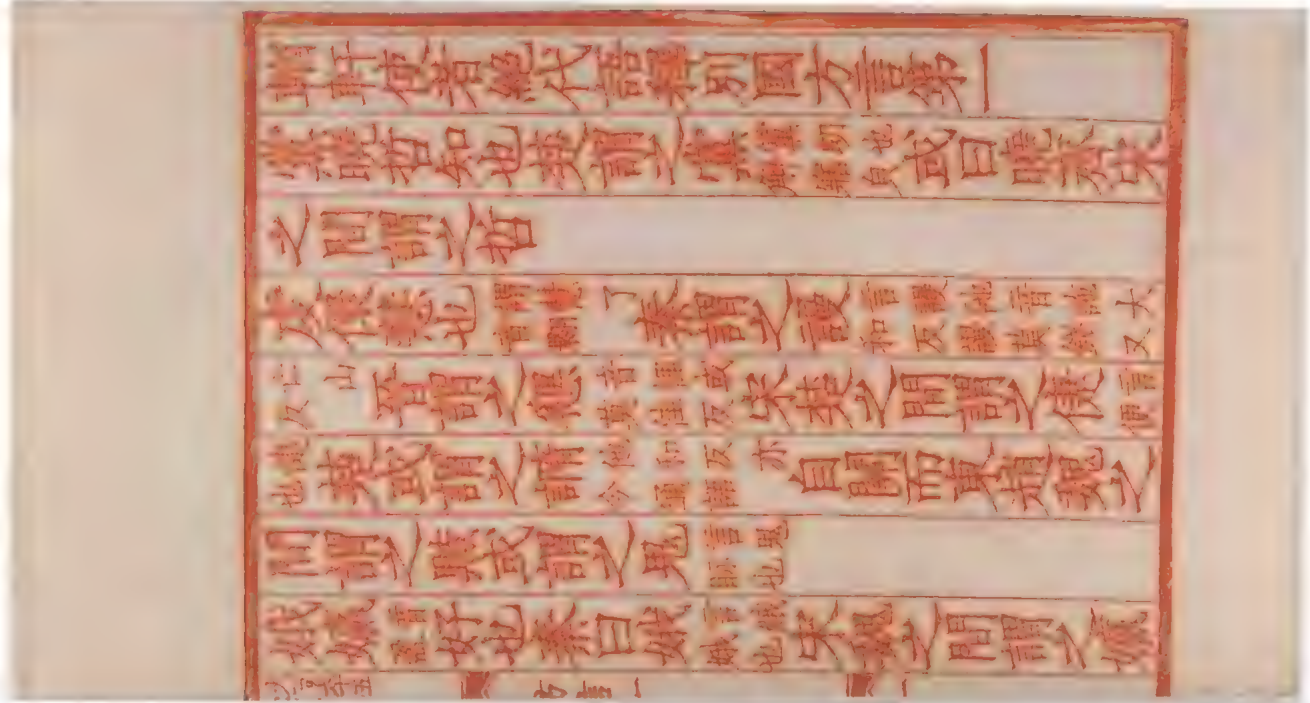 輶軒使者絶代語釋別國方言第一
黨曉哲知也楚謂之黨黨朗也解寤皃或曰曉齊宋
之間謂之哲
虔儇慧也謂慧了音翾秦謂之謾言謾詑音詑大和反謾莫錢又
亡山反晉謂之㦟音悝或莫佳反宋楚之間謂之倢言便
倢也楚或謂之䜏他和反亦今通語自關而東趙魏之
間謂之黠或謂之鬼言鬼眎也
娥㜲音盈好也秦曰娥言娥娥也宋魏之間謂之㜲
方言一